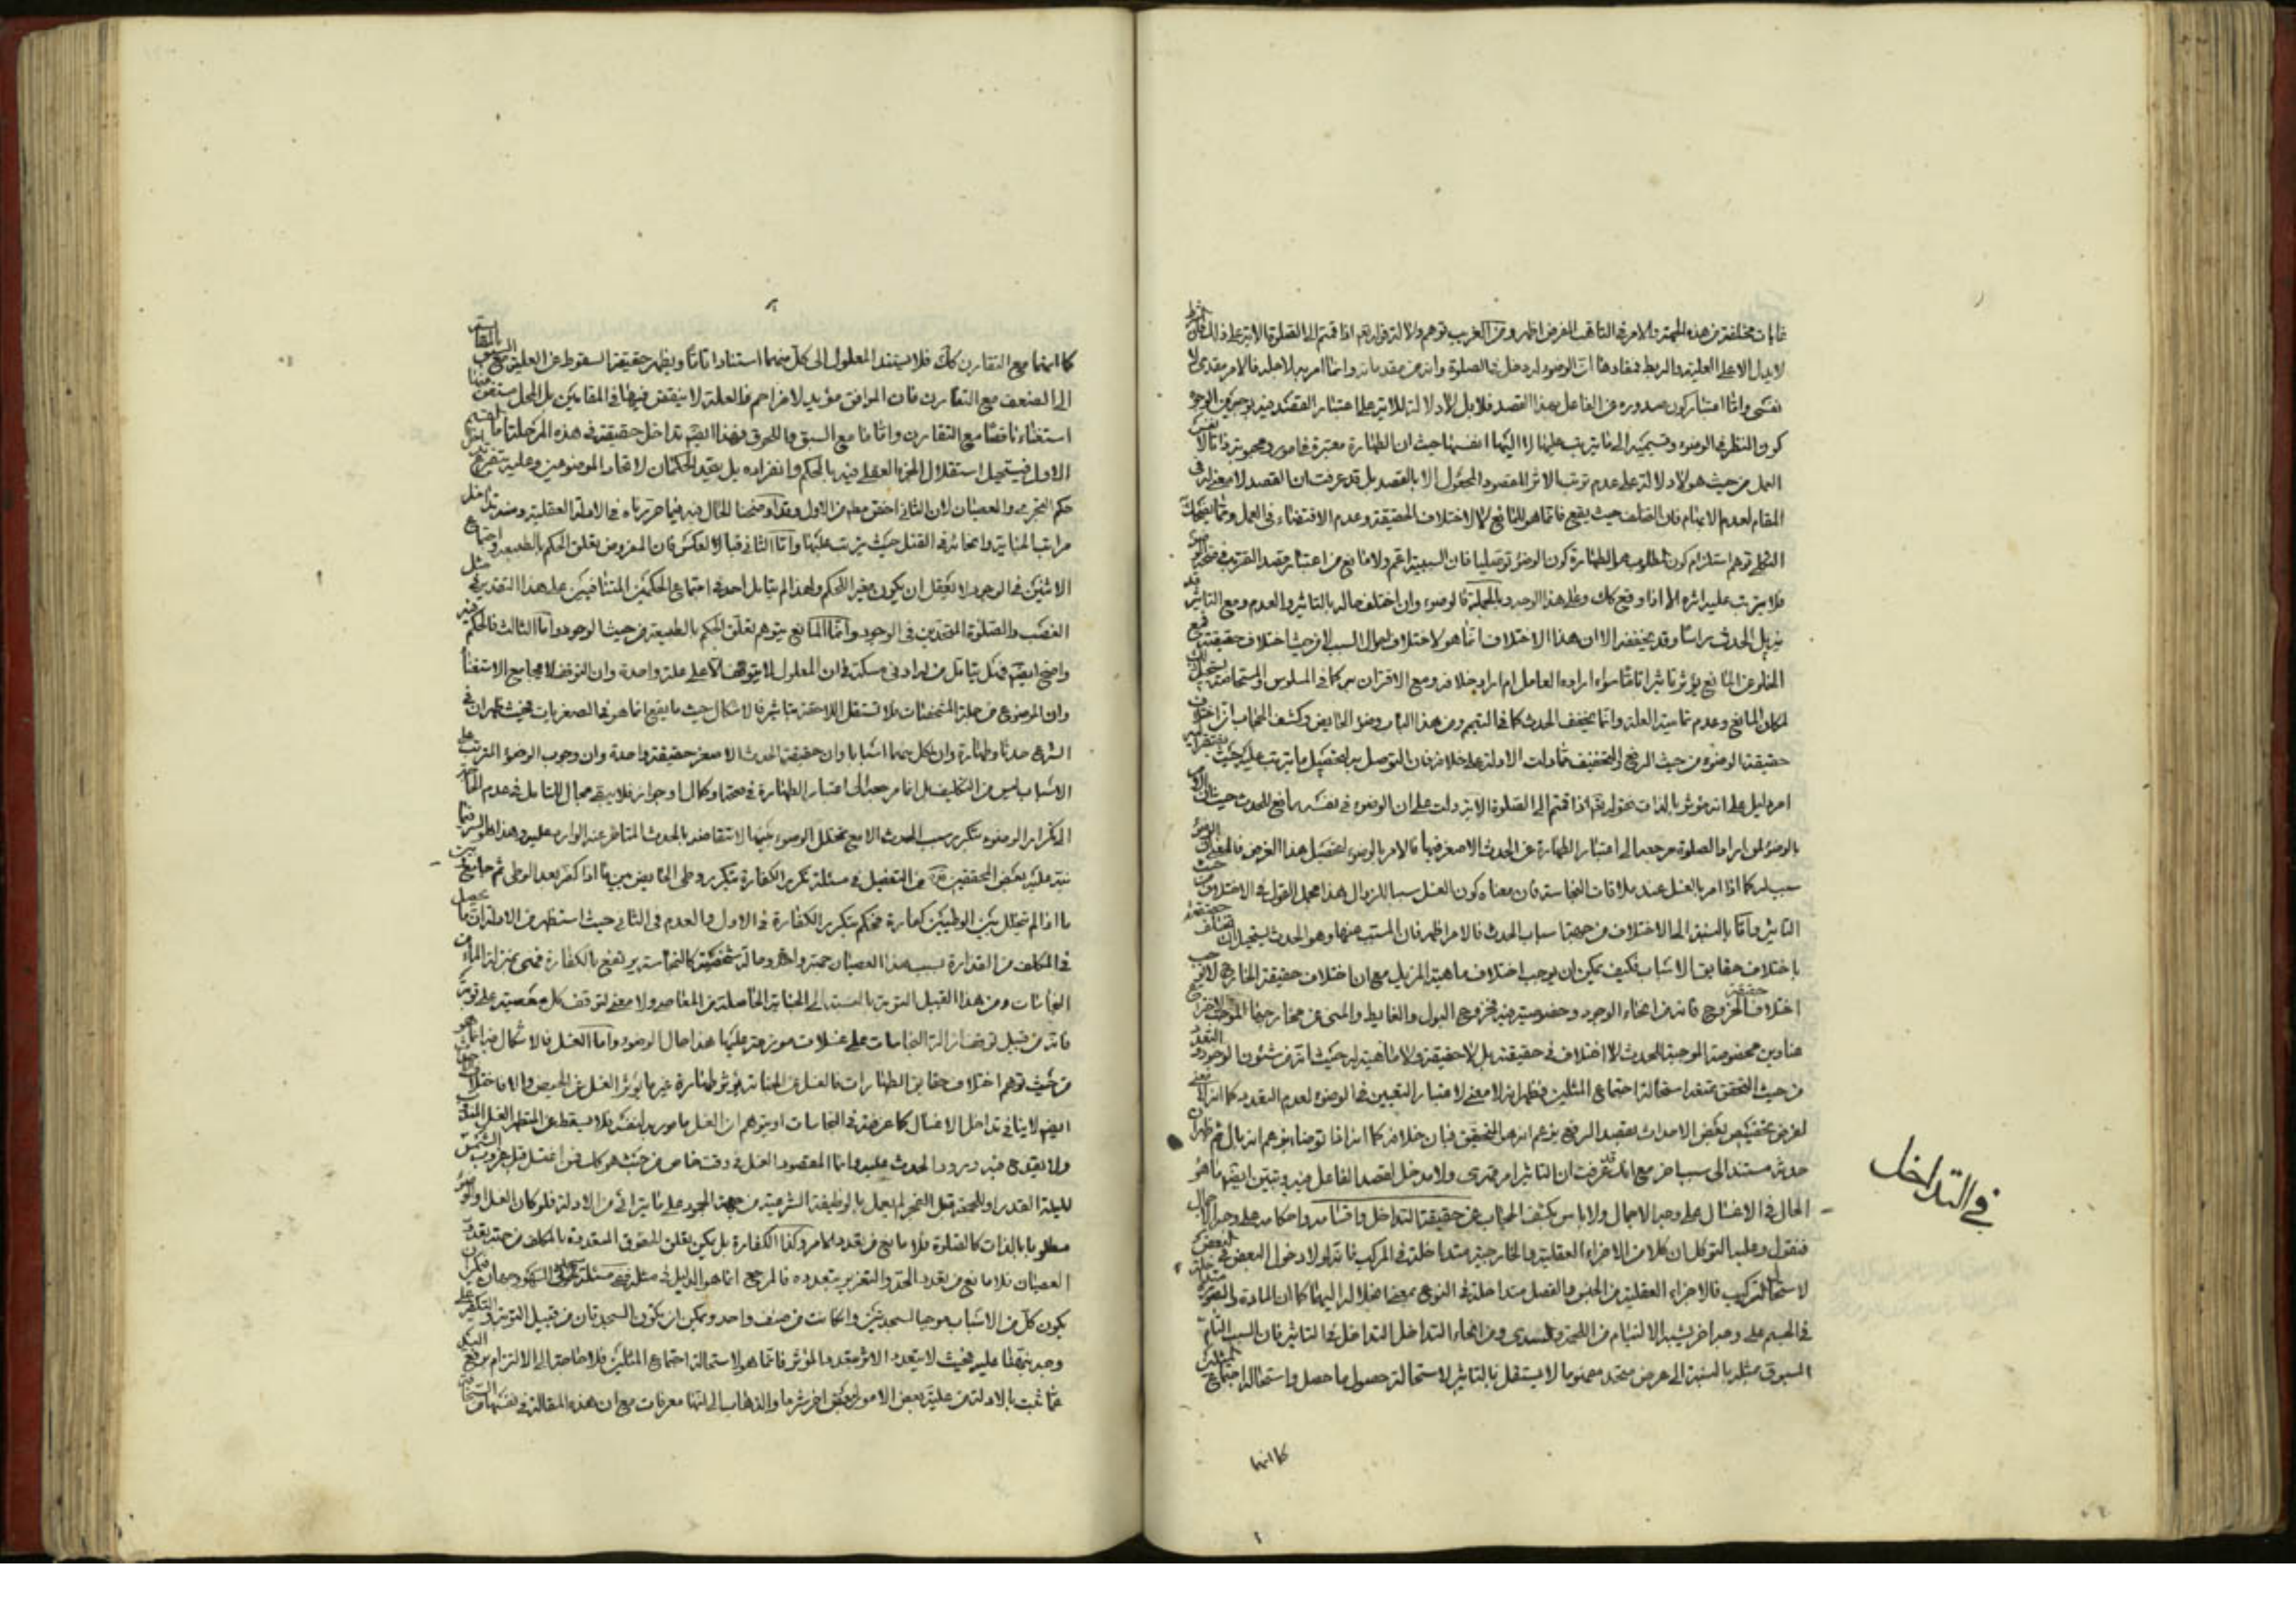 غايات مختلفة من هذه الجهة والامر في التاهب للفرض اظهر ومن الغريب توهم دلالة قوله تعم اذا قمتم الى الصلوة الاية على ذلك فان الشرط
لا يدل الا على العلية والربط فمفادها ان الوضوء له دخل في الصلوة وانه من مقدماته وانما امر به لاجلها فالامر مقدمى لا
نفسى واما اعتبار كون صدوره من الفاعل بهذا القصد فلا بل لا دلالة للاية على اعتبار القصد فيه بوجه
كون النظر في الوضوء وقسيميه الى ما يترتب عليها لا اليها انفسها حيث ان الطهارة معتبرة
العمل من حيث هو لا دلالة على عدم ترتب الاثر المقصود المجعول الا بالقصد بل قد عرفت ان القصد لا معنى له في
المقام لعدم الابهام فان التخلف حيث يقع فانما هو للمانع لا لاختلاف الحقيقة وعدم الاقتضاء في العمل ومما يضحك
الثكلى توهم استلزام كون المطلوب هو الطهارة كون الوضوء توصليا فان السببية اعم ولا مانع من اعتبار قصد القربة في
فلا يترتب عليه اثره الا اذا وقع كك وعلى هذا الوجه وبالجملة فالوضوء وان اختلف حاله بالتاثير والعدم ومع التاثير قد
يزيل الحدث راسا وقد يخففه الا ان هذا الاختلاف انما هو لاختلاف احوال السبب لا من حيث اختلاف حقيقته
الخلو عن المانع يؤثر تاثيرا تاما سواء اراده العامل ام اراد خلافه ومع الاقتران به كما في المسلوس والمستحاضة
لمكان المانع وعدم تمامية العلة وانما يخفف الحدث كما في التيمم ومن هذا الباب وضوء الحايض وكشف الحجاب
حقيقة الوضوء من حيث الرفع والتخفيف مما دلت الادلة على خلافه فان التوصل به لتحصيل ما يترتب عليه بحيث
امر دليل على انه مؤثر بالذات فقوله تعم اذا قمتم الى الصلوة الاية دلت على ان الوضوء في نفسه رافع للحدث حيث ان الامر
بالوضوء لمن اراد الصلوة مرجعه الى اعتبار الطهارة عن الحدث الاصغر فيها فالامر بالوضوء لتحصيل هذا الغرض
سبب له كما اذا امر بالغسل عند ملاقات النجاسة فان معناه كون الغسل سببا للزوال هذا مجمل القول في الاختلاف من حيث
التاثير واما بالنسبة الى الاختلاف من جهة اسباب الحدث فالامر اظهر فان المسبب عنها وهو الحدث يستحيل ان تختلف حقيقته
باختلاف حقايق الاسباب فكيف يمكن ان يوجب اختلاف ماهية المزيل مع ان اختلاف حقيقة الخارج لا يوجب
اختلاف حقيقة الخروج فانه من انحاء الوجود وخصوصية فيه فخروج البول والغايط والمنى من مخارجها
عناوين مخصوصة الموجبة للحدث لا اختلاف في حقيقته بل لا حقيقة ولا ماهية له حيث انه من شئون الوجود
من حيث التحقق متعدد استحالة اجتماع المثلين فظهر انه لا معنى لاعتبار التعيين في الوضوء لعدم التعدد كما انه لا معنى
لفرض تخصيص بعض الاحداث بقصد الرفع بزعم انه هو المتحقق فبان خلافه كما انه اذا توضا بزعم انه بال ثم ظهر ان
حدثه مستند الى سبب اخر مع انك قد عرفت ان التاثير امر قهرى ولا مدخل لقصد الفاعل فيه وتبين ايضا ما هو
الحال في الاغسال على وجه الاجمال ولا باس بكشف الحجاب عن حقيقة التداخل واقسامه واحكامه على وجه الاجمال
فنقول وعليه التوكل ان كلا من الاجزاء العقلية والخارجية متداخلة في المركب فانه لولا دخول البعض في البعض
لاستحال التركيب فالاجزاء العقلية من الجنس والفصل متداخلة في النوع بمعنى انحلاله اليها كما ان المادة والصورة
في الجسم على وجه اخر يشبه الالتيام من اللحمة والسدى ومن انحاء التداخل التداخل في التاثير فان السبب التام
المسبوق بمثله بالنسبة الى عرض متحد معنى ما لا يستقل بالتاثير لاستحالة حصول ما حصل واستحالة اجتماع المثلين
كما انهما
في التداخل
كما انهما مع التقارن كك فلا يستند المعلول الى كل منهما استنادا تاما ويظهر حقيقة السقوط عن العلية مع السبق
الى الضعف مع التقارن فان الموافق مؤيد لا مزاحم فالعلة لا ينتقض فيها في المقامين بل المحل مستغن عنها
استغناء ناقصا مع التقارن وتاما مع السبق واللحوق فهذا القسم تداخل حقيقة في هذه المرحلة
الاول فيستحيل استقلال الجزء العقلى فيه بالحكم وانفراده بل يتحد الحكمان لاتحاد الموضوعين وعليه يتفرع تداخل
حكم التجرى والعصيان لان الثانى اخص مطلقا من الاول وقد اوضحنا الحال فيه فيما حررناه في الادلة العقلية ومنه تداخل
مراتب الجناية وانحائه في القتل حيث يترتب عليها واما الثانى فبالعكس فان المفروض تعلق الحكم بالطبيعة واجتماع
الاثنين في الوجود لا يعقل ان يكون مغير الحكم ولهذا لم يتامل احد في اجتماع الحكمين المتنافيين على هذا التقدير في مثل
الغصب والصلوة المتحدين في الوجود وانما المانع يتوهم تعلق الحكم بالطبيعة من حيث الوجود واما الثالث فالحكم فيه
واضح ايضا فهل يتامل من له ادنى مسكة في ان المعلول لا يتوقف الا على علة واحدة وان التوقف لا يجامع الاستغناء
وان الموضوع من جملة المشخصات فلا تستقل اللاحقة بتاثير فالاشكال حيث ما يقع انما هو في الصغريات فحيث ظهر ان في
الشرع حدثا وطهارة وان لكل منهما اسبابا وان حقيقة الحدث الاصغر حقيقة واحدة وان وجوب الوضوء المترتب على
الاسباب ليس من التكليف بل انما مرجعه الى اعتبار الطهارة في صحة او كمال او جواز فلا يبقى مجال للتامل في عدم الحاجة
الى تكرار الوضوء بتكرر سبب الحدث الا مع تخلل الوضوء بينها لانتقاضه بالحدث المتاخر عنه الوارد عليه وهذا هو السر فيما
نبه عليه بعض المحققين من التفصيل في مسئلة تكرر الكفارة بتكرر وطى الحايض بين ما اذا كفر بعد الوطى ثم جامع وبين
ما اذا لم يتخلل بين الوطيين كفارة فحكم بتكرر الكفارة في الاول والعدم في الثانى حيث استظهر من الادلة ان ما يحصل
في المكلف من القذارة بسبب هذا العصيان جهة واحدة وحالة شخصية كالنجاسة يرتفع بالكفارة فهى بمنزلة الماء من
النجاسات ومن هذا القبيل التوبة بالنسبة الى الجناية الحاصلة من المعاصى ولا معنى لتوقف كل معصية على توبة
فانه من قبيل توقف ازالة النجاسات على غسلات موزعة عليها هذا حال الوضوء واما الغسل فالاشكال فيه انما هو
من حيث توهم اختلاف حقايق الطهارات فالغسل عن الجنابة يؤثر طهارة غير ما يؤثره الغسل عن الحيض والا فاختلاف
ايضا لا ينافى تداخل الاغسال كما عرفته في النجاسات او يتوهم ان الغسل مامور به لنفسه فلا يسقط عن المتطهر
ولا يقدح فيه ورود الحدث عليه وانما المقصود الغسل في وقت خاص من حيث هو كك فمن اغتسل قبل غروب الشمس
لليلة القدر او للجمعة قبل الفجر لم يعمل بالوظيفة الشرعية من جهة الجمود على ما يتراءى من الادلة فلو كان الغسل او الوضوء
مطلوبا بالذات كالصلوة فلا مانع من تعدد الامر وكذا الكفارة بل يمكن تعلق الحقوق المتعددة بالمكلف من جهة تعدد
العصيان فلا مانع من تعدد الحد والتعزير بتعدده فالمرجع انما هو الدليل في مثله ففى مسئلة سجدتى السهو
يكون كل من الاسباب موجبا لسجدتين وان كانت من صنف واحد ويمكن ان يكون السجدتان من قبيل التوبة
وجه نبهنا عليه فحيث لا يتعدد الاثر بتعدد المؤثر فانما هو لاستحالة اجتماع المثلين فلا حاجة الى الالتزام برفع اليد
عما ثبت بالادلة من علية بعض الامور لبعض اخر شرعا والذهاب الى انها معرفات مع ان هذه المقالة في نفسها من